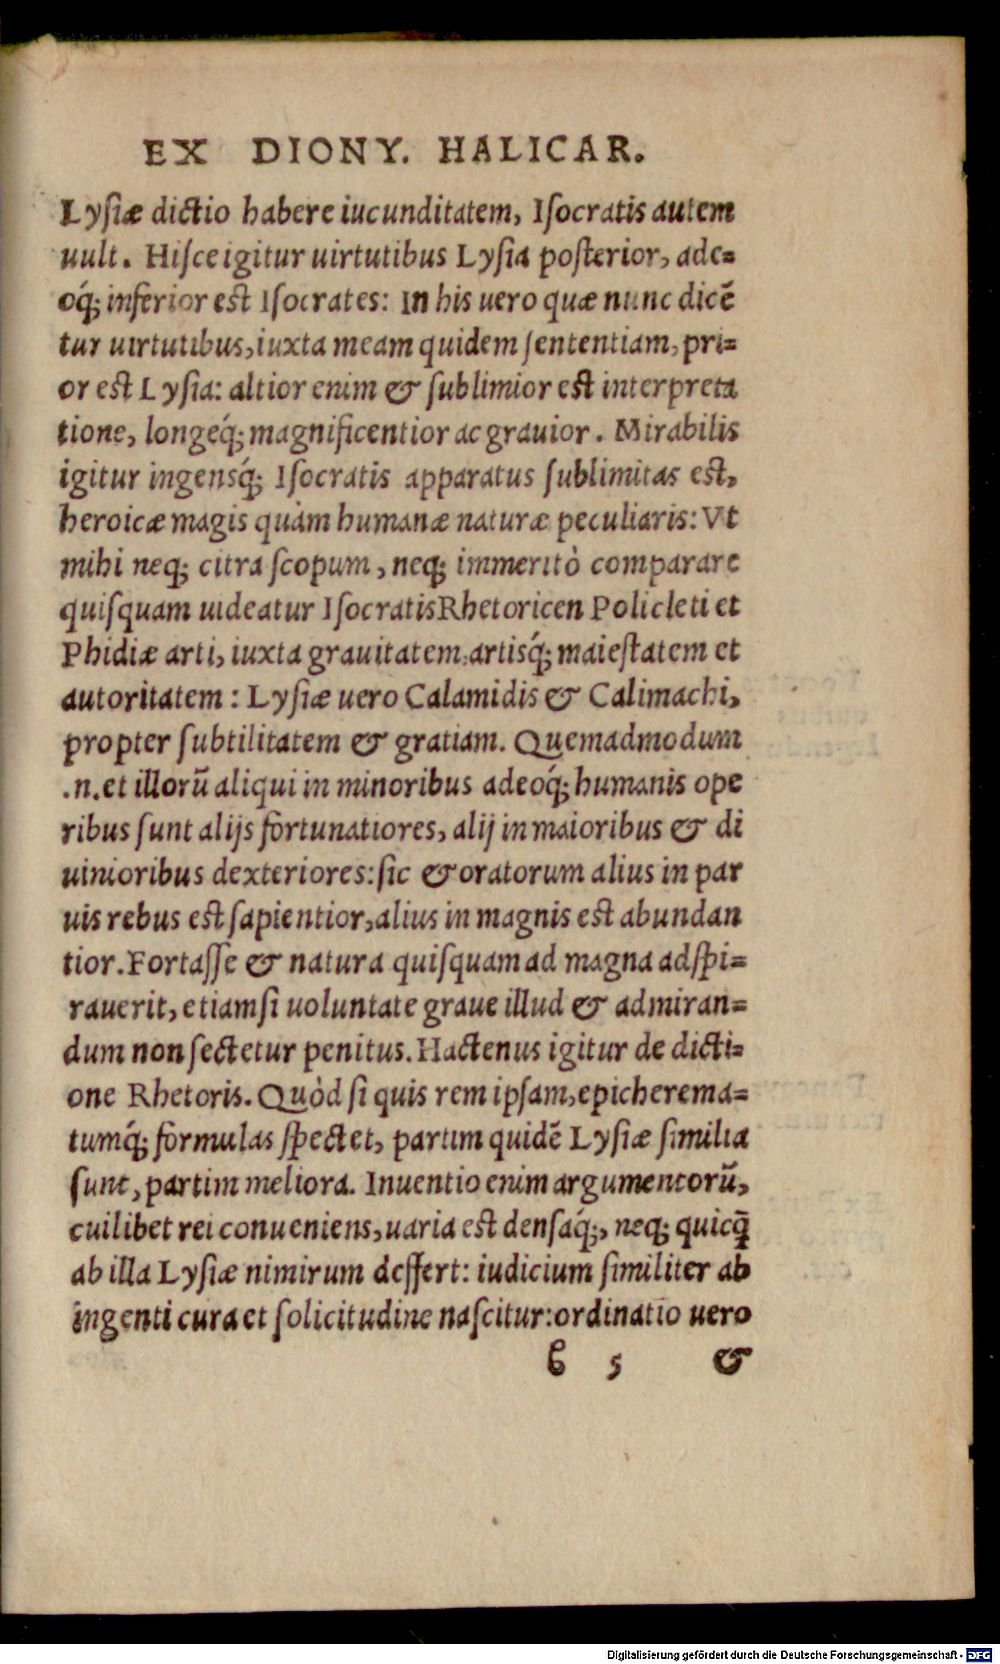 EX DIONY. HALICAR.
Lyſiæ dictio habere iucunditatem, Iſocratis autem
uult. Hiſce igitur uirtutibus Lyſia poſterior, ade=
oq́; inferior est Iſocrates: In his uero quæ nunc dicẽ
tur uirtutibus, iuxta meam quidem ſententiam, pri=
or est Lyſia: altior enim & ſublimior est interpreta
tione, longeq́; magnificentior ac grauior. Mirabilis
igitur ingensq́; Iſocratis apparatus ſublimitas est,
heroicæ magis quàm humanæ naturæ peculiaris: Vt
mihi neq; citra ſcopum, neq; immeritò comparare
quiſquam uideatur Iſocratis Rhetoricen Policleti et
Phidiæ arti, iuxta grauitatem, artisq́; maieſtatem et
autoritatem: Lyſiæ uero Calamidis & Calimachi,
propter ſubtilitatem & gratiam. Quemadmodum
.n. et illorũ aliqui in minoribus adeoq́; humanis ope
ribus ſunt alijs fortunatiores, alij in maioribus & di
uinioribus dexteriores: ſic & oratorum alius in par
uis rebus est ſapientior, alius in magnis est abundan
tior. Fortaſſe & natura quiſquam ad magna adſpi=
rauerit, etiamſi uoluntate graue illud & admiran=
dum non ſectetur penitus. Hactenus igitur de dicti=
one Rhetoris. Quòd ſi quis rem ipſam, epicherema=
tumq́; formulas ſpectet, partim quidẽ Lyſiæ ſimilia
ſunt, partim meliora. Inuentio enim argumentorũ,
cuilibet rei conueniens, uaria est denſaq́;, neq; quicq̃
ab illa Lyſiæ nimirum deffert: iudicium ſimiliter ab
ingenti cura et ſolicitudine naſcitur: ordinatio uero
b 5 &
Digitalisierung gefördert durch die Deutsche Forschungsgemeinschaft - DFG